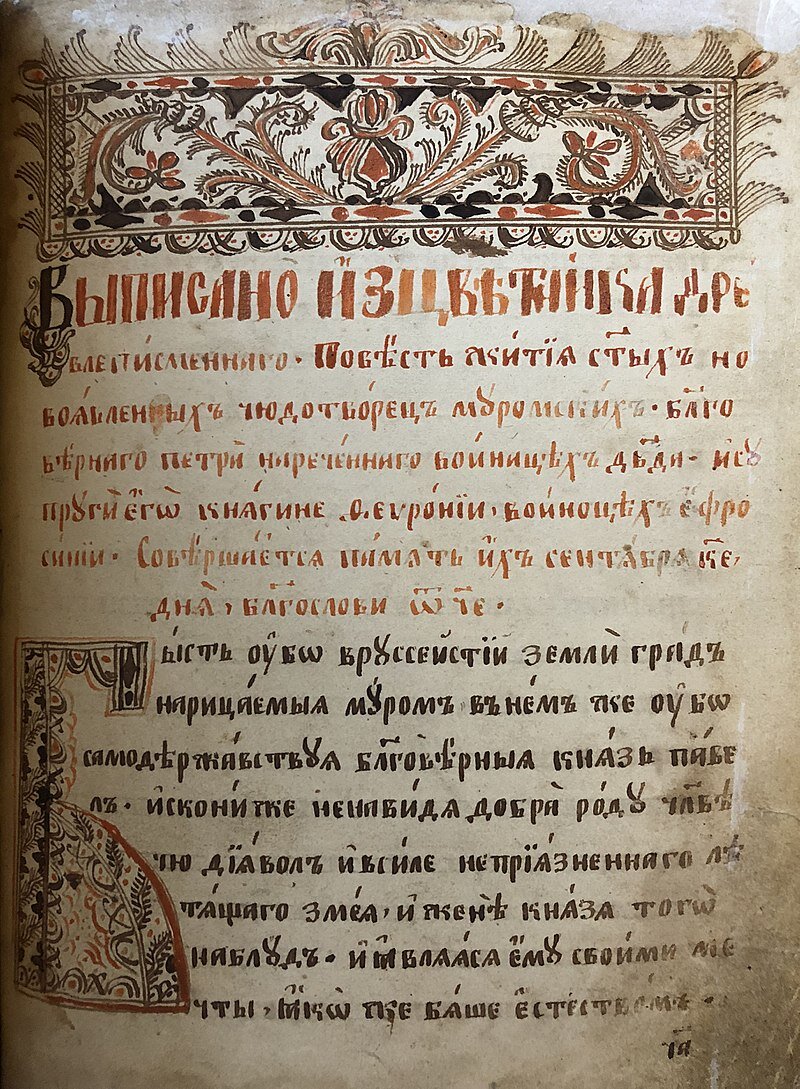 Выписано и҆зцвѣтника дре
влеписменнаго. Повѣсть жити́ѧ ст҃ыхъ но
воѧвле́нныхъ чюдотво́рецъ мꙋ́ромскихъ. блг҃о
вѣ́рнаго петра̀ нарече́ннаго во́иноцѣхъ дв҃да. и҆сꙋ
прꙋги є҆гѡ̀ кнѧги́не ѳ.еѵро́нїи. во́иноцѣхъ є҆фро
си́нїи. Соверша́етсѧ па́мѧть и҆́хъ сентѧбрѧ к҃е,
днѧ̀, благⷭ҇ослови ѿч҃е.
Бы́сть ᲂу҆́бѡ врꙋссе́йстїй землѝ гра́дъ
нарица́емыѧ мꙋ́ромъ. въне́мъ же ᲂу҆́бѡ
самоде́ржавствꙋѧ блг҃овѣ́рныѧ кнѧ́зь па́ве
лъ. и҆скони́же ненави́дѧ добра̀ ро́дꙋ чл҃вѣ́
чю дїѧ́волъ и҆всилѐ неприѧ́зненнаго лѣ
тѧ́щаго змеѧ̀, и҆женѣ̀ кнѧ́зѧ тогѡ̀
наблꙋ́дъ. и҆ꙗ҆влѧ́ѧсѧ є҆мꙋ̀ свои́ми ме
чты̀, ꙗ҆́коже бѧ́ше є҆стество́мъ.